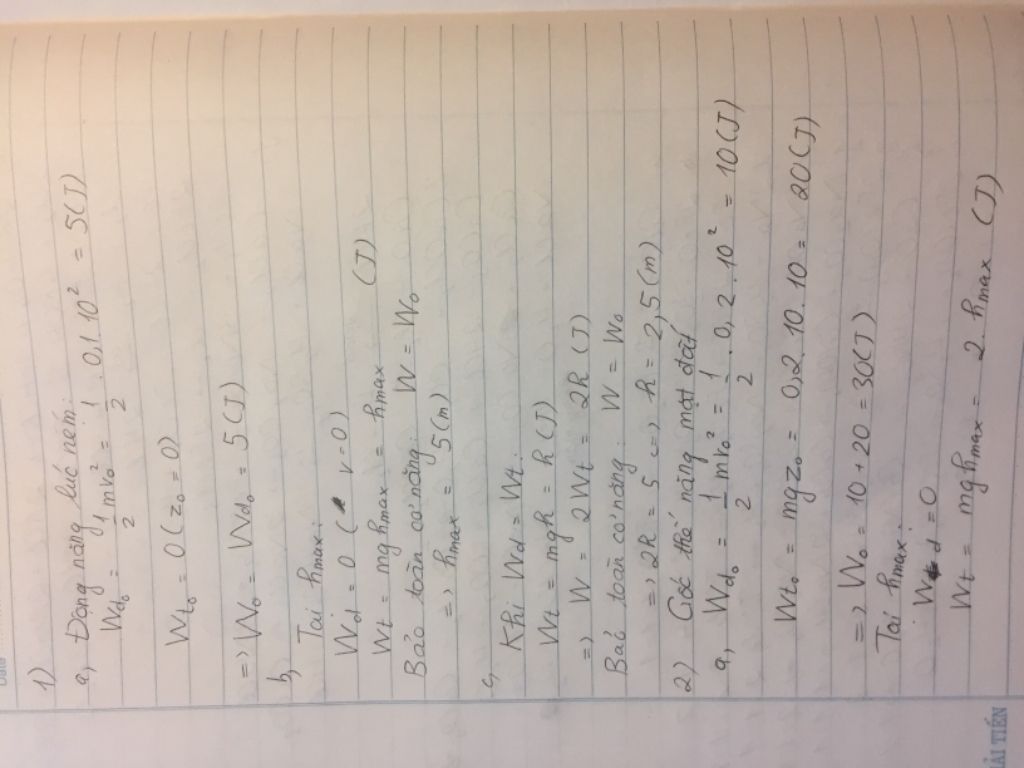 1)
a, Động năng lúc ném:
Wđ₀ = 1/2 mv₀² = 1/2 . 0,1.10² = 5(J)
Wt₀ = 0 (z₀ = 0)
=> W₀ = Wđ₀ = 5(J)
b,
Tại hmax:
Wđ = 0 ( v=0)
Wt = mghmax = hmax (J)
Bảo toàn cơ năng: W = W₀
=> hmax = 5(m)
c,
Khi Wđ = Wt:
Wt = mgh = h (J)
=> W = 2Wt = 2h (J)
Bảo toàn cơ năng: W = W₀
=> 2h = 5 => h = 2,5(m)
2) Gốc thế năng mặt đất
a, Wđ₀ = 1/2 mv₀² = 1/2 . 0,2.10² = 10(J)
Wt₀ = mgz₀ = 0,2.10.10 = 20(J)
=> W₀ = 10+20 = 30(J)
Tại hmax:
Wđ = 0
Wt = mghmax = 2.hmax (J)
ẢI TIẾN